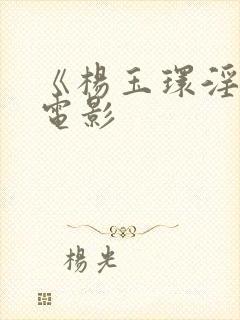 《楊玉環淫
電影
楊光